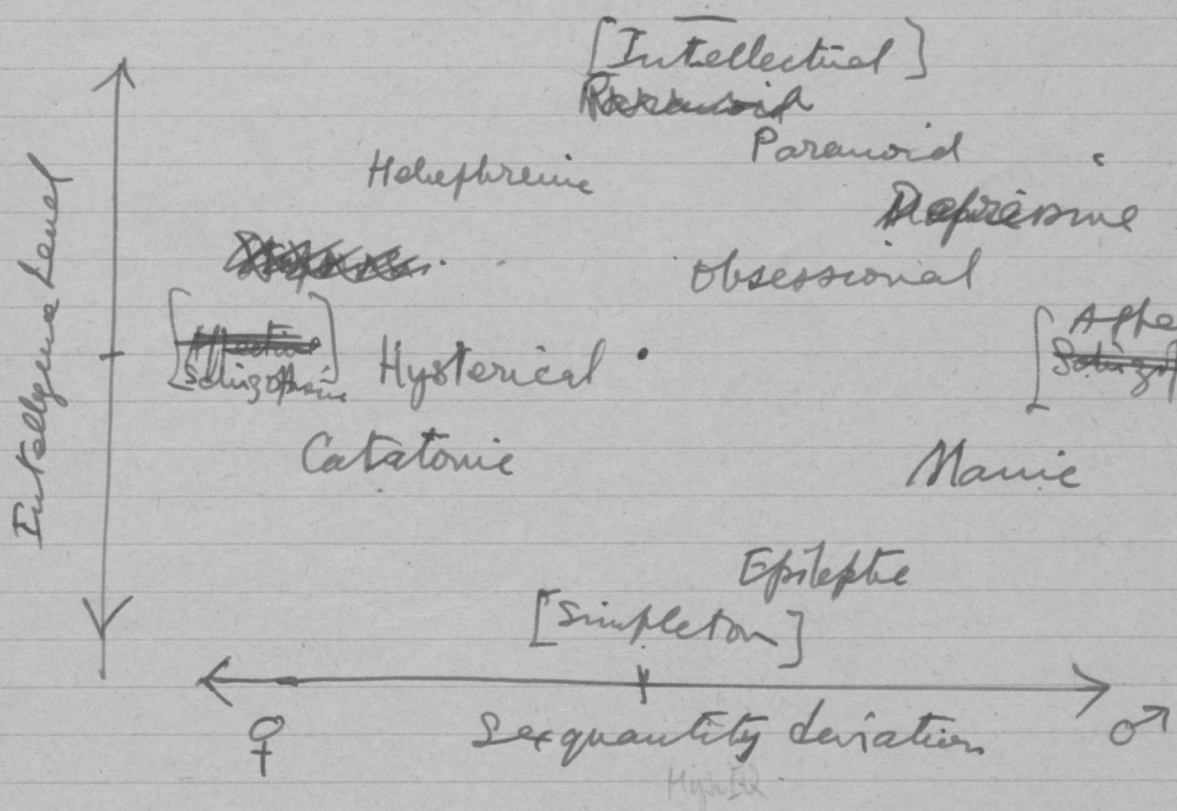 [Intellectual]
Paranoid
Paranoid
Hebephrenic
Depressive
Obsessional
[Affective
Schizophrenic]
Hysterical
[Affe
Schizof
Catatonic
Manic
Epileptic
[Simpleton]
Intelligence Level
♀ Sexquantity deviation ♂